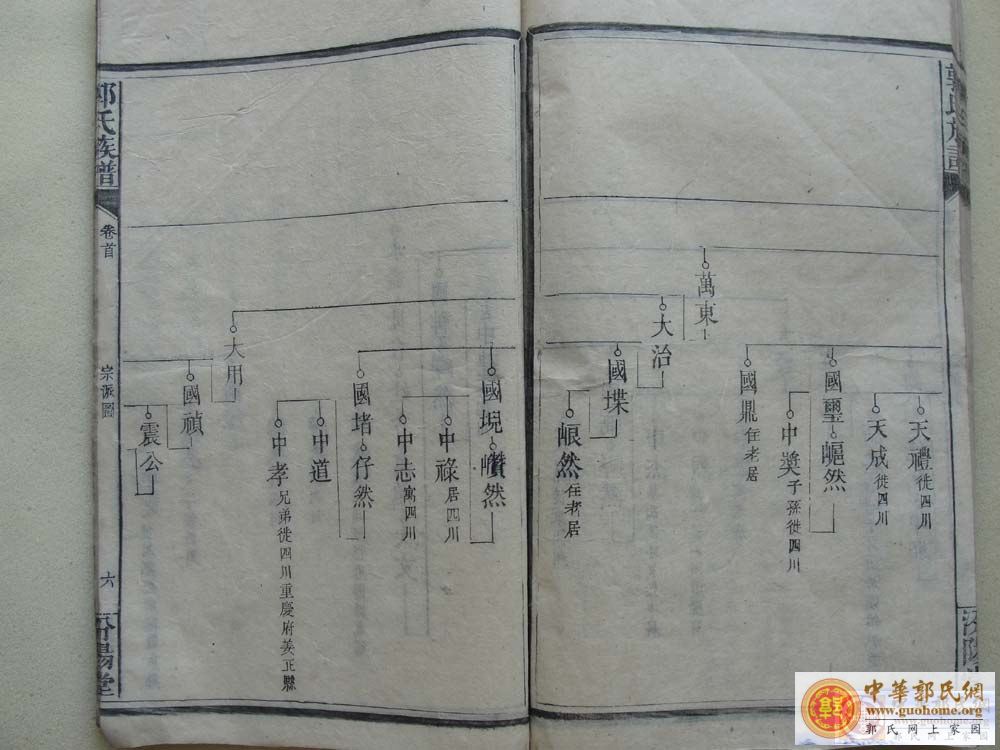 郭氏族譜
汾陽
天禮 徙四川
天成 徙四川
國璽 然
中奠 子孫徙四川
國鼎 在老居
萬東
大治
國堞
然 在老居
國堄 巑然
中祿 居四川
中志 寓四川
國堵 仔然
中道
中孝 兄弟徙四川重慶府 縣
大用
國禎
震公
郭氏族譜
卷首
宗派圖
六
汾陽堂
中華郭氏網
www.guohome.org
郭氏网上家园